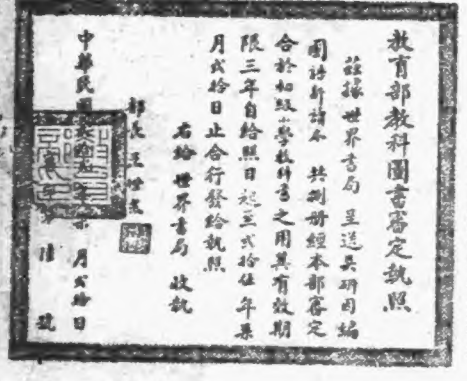 教育部教科圖書審定執照
茲據世界書局呈送吳研因編
國語新讀本 共捌冊經本部審定
合於初級小學教科書之用其有效期
限三年自給照日起至弍拾伍年
月弍拾日止合行發給執照
右給世界書局收執
部長王世杰
中華民國 年 月弍拾日
號